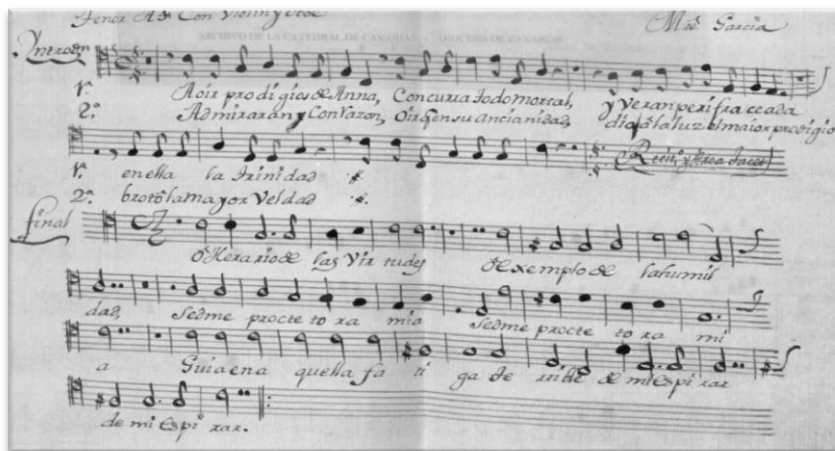 Tenor A Con Violin y Oboe
Mtô. Garcia
ARCHIVO DE LA CATEDRAL DE CANARIAS DIOCESIS DE CANARIAS
Introdn
1ª. A oir prodigios de Anna, Concurra todo mortal, y Veran perifraseada
2ª. Admiraran y Con razon, Origen su ancianidad, dio a la luz el maior prodigio
Recit. y Area tacet
1ª. en ella la trinidad
2ª. brotô la mayor Verdad
Final
ô Herario de las Virtudes ô exemplo de la humil
dad, Sedme proctectora mia Sedme proctectora mi
a Guia en a quella fatiga de rible de mi Espirar
de mi Espirar.